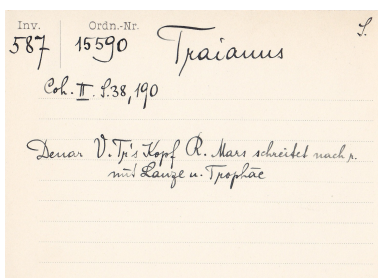 Inv. Ordn.-Nr. S.
587 15590 Traianus
Coh. II. S.38,190
Denar V. Tr's Kopf R. Mars schreitet nach r.
mit Lanze u. Trophäe